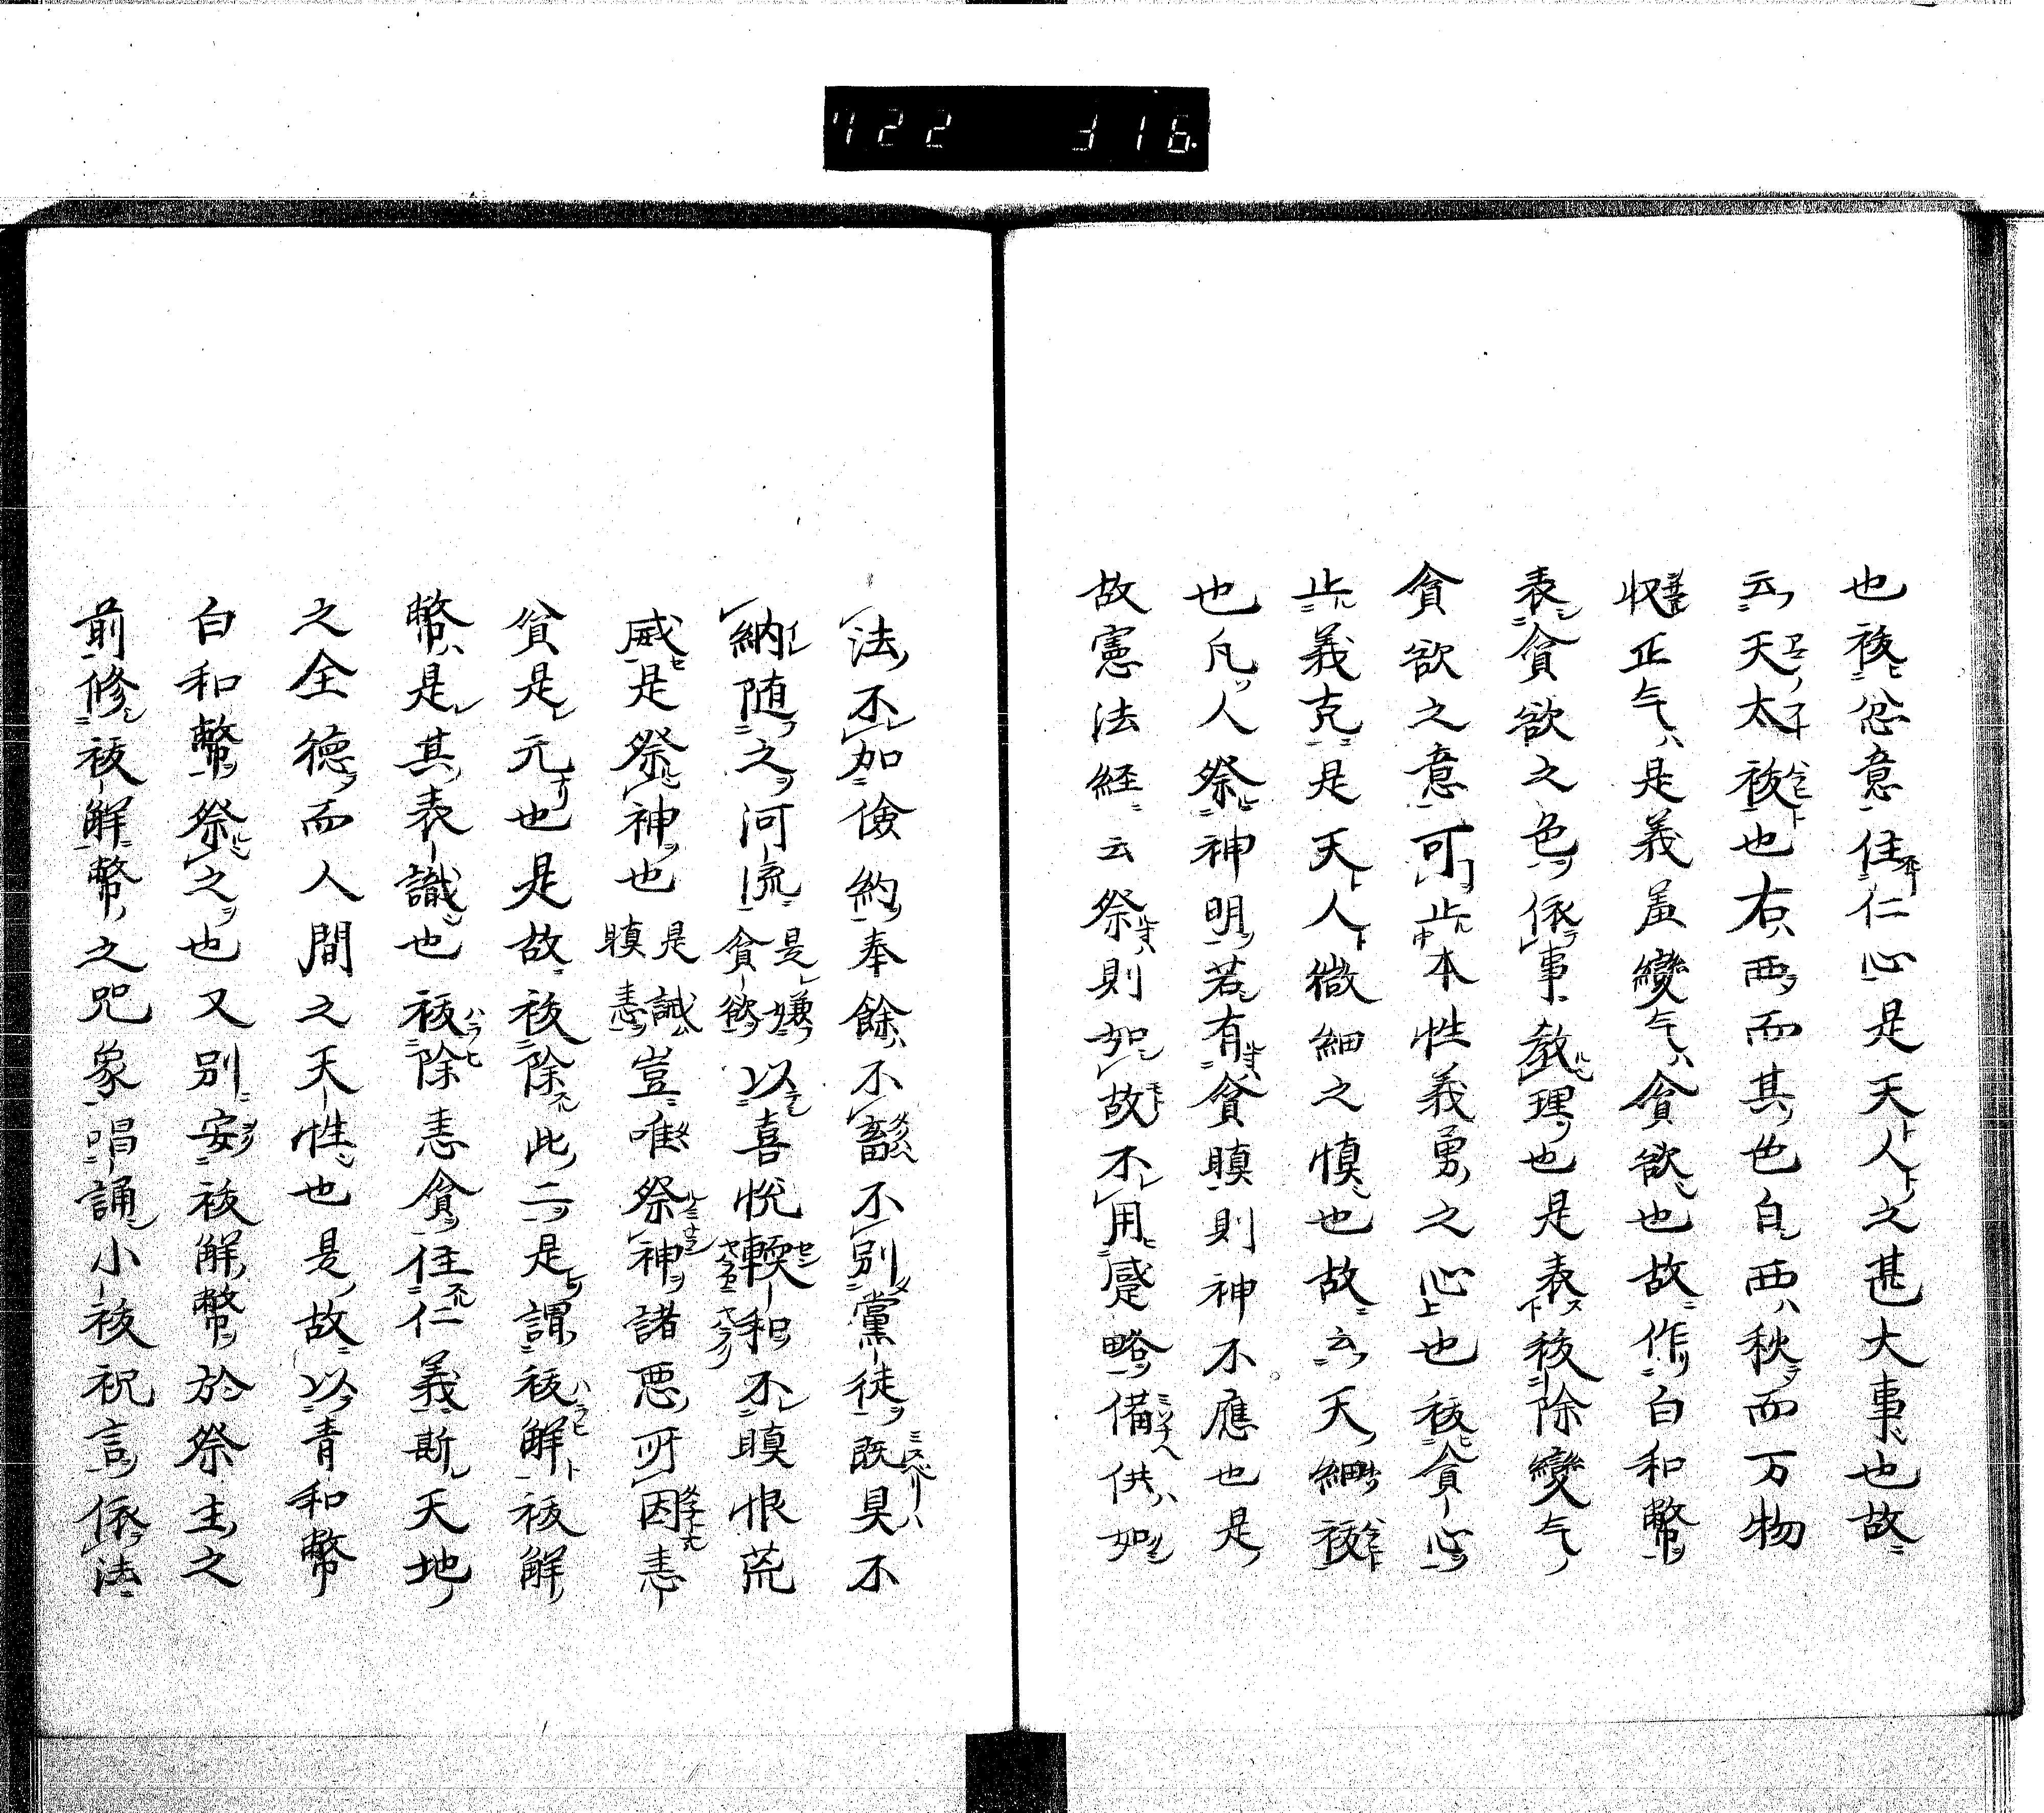 722 316
也祓忿意住仁心是天人之甚大事也故
云天太祓也右西而其色白西秋而万物
収正气是義盖變气貪欲也故作白和幣
表貪欲之色依事教理也是表祓除變气
貪欲之意可止本性義勇之心也祓貪心
止義克是天人微細之慎也故云天細祓
也凡人祭神明若有貪瞋則神不應也是
故憲法経云祭則如故不用蹙略備供如
法不加儉約奉餘不豁不別黨徒既具不
納随之河流是嫌貪慾以喜悦輭和不瞋恨荒
威是祭神也是誡瞋恚豈唯祭神諸惡所因恚
貧是元也是故祓除此二是謂祓解祓解
幣是其表識也祓除恚貪住仁義斯天地
之全德而人間之天性也是故以青和幣
白和幣祭之也又別安祓解幣於祭主之
前修祓解幣之咒象唱誦小祓祝言依法